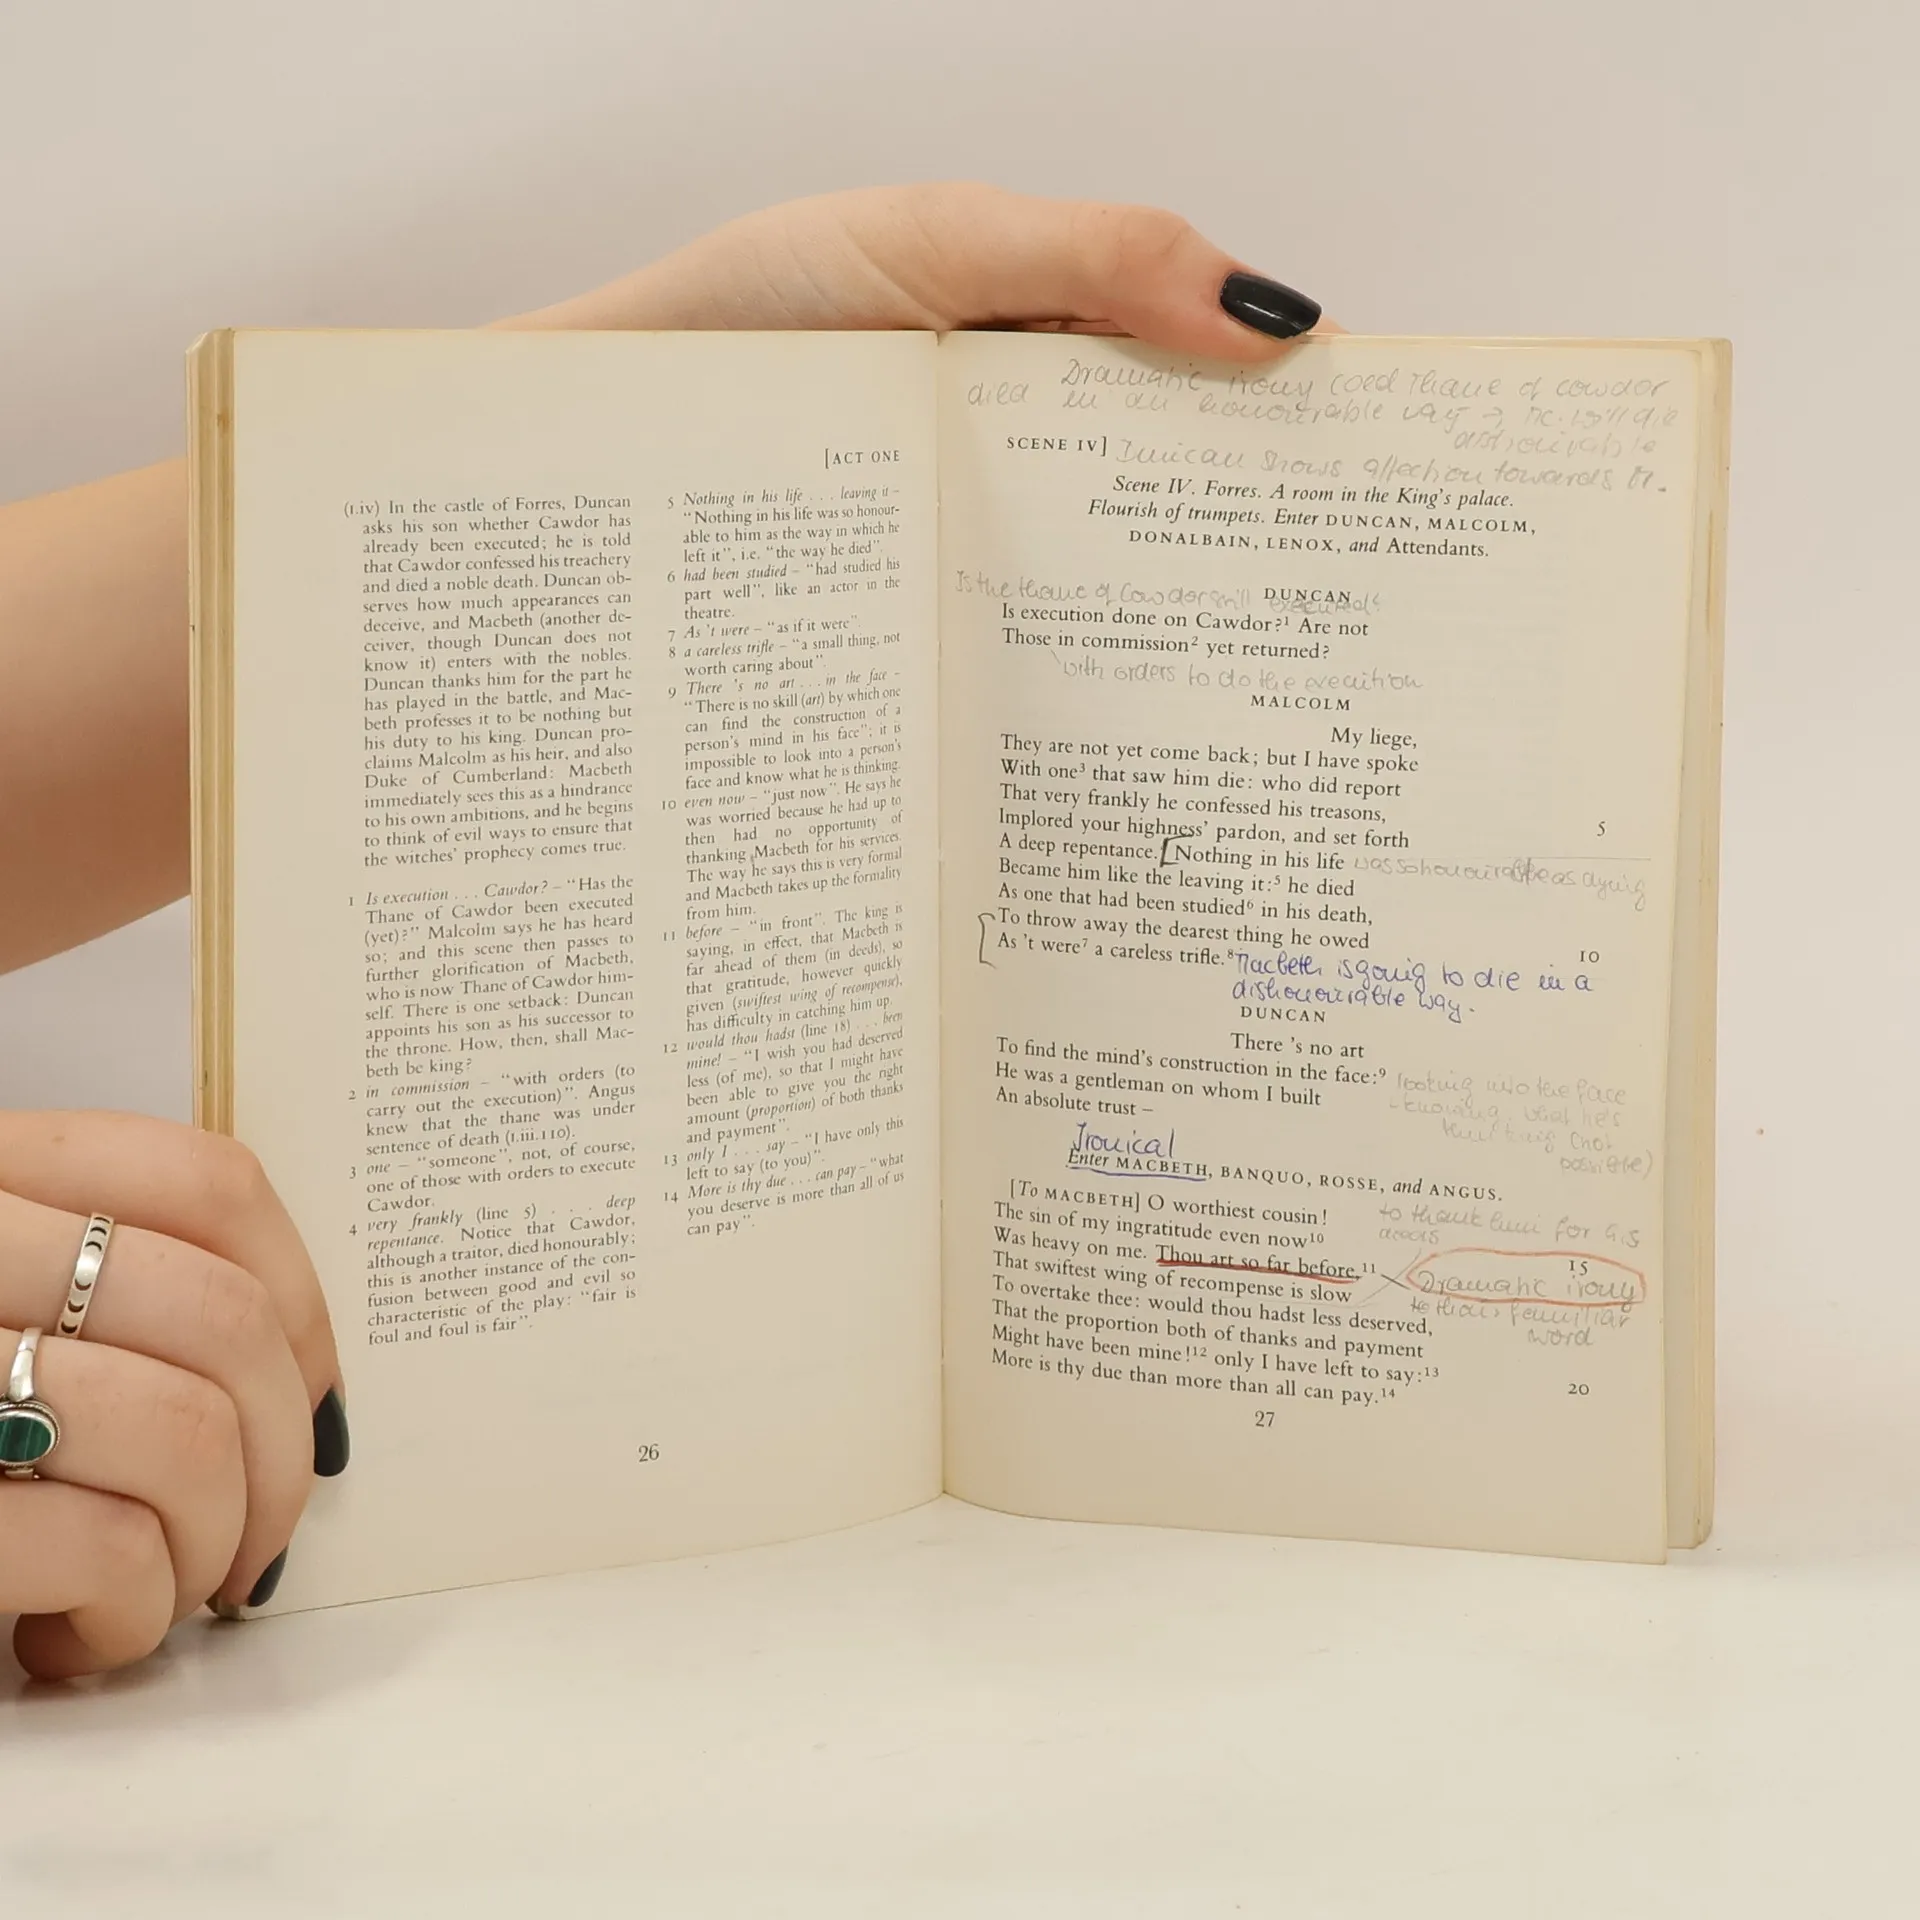 [ACT ONE
(I.iv) In the castle of Forres, Duncan
asks his son whether Cawdor has
already been executed; he is told
that Cawdor confessed his treachery
and died a noble death. Duncan ob-
serves how much appearances can
deceive, and Macbeth (another de-
ceiver, though Duncan does not
know it) enters with the nobles.
Duncan thanks him for the part he
has played in the battle, and Mac-
beth professes it to be nothing but
his duty to his king. Duncan pro-
claims Malcolm as his heir, and also
Duke of Cumberland: Macbeth
immediately sees this as a hindrance
to his own ambitions, and he begins
to think of evil ways to ensure that
the witches' prophecy comes true.
1 Is execution . . . Cawdor? – "Has the
Thane of Cawdor been executed
(yet)?" Malcolm says he has heard
so; and this scene then passes to
further glorification of Macbeth,
who is now Thane of Cawdor him-
self. There is one setback: Duncan
appoints his son as his successor to
the throne. How, then, shall Mac-
beth be king?
2 in commission – "with orders (to
carry out the execution)". Angus
knew that the thane was under
sentence of death (I.iii.110).
3 one – "someone", not, of course,
one of those with orders to execute
Cawdor.
4 very frankly (line 5) . . . deep
repentance. Notice that Cawdor,
although a traitor, died honourably;
this is another instance of the con-
fusion between good and evil so
characteristic of the play: "fair is
foul and foul is fair".
5 Nothing in his life . . . leaving it –
"Nothing in his life was so honour-
able to him as the way in which he
left it", i.e. "the way he died".
6 had been studied – "had studied his
part well", like an actor in the
theatre.
7 As 't were – "as if it were".
8 a careless trifle – "a small thing, not
worth caring about".
9 There 's no art . . . in the face –
"There is no skill (art) by which one
can find the construction of a
person's mind in his face"; it is
impossible to look into a person's
face and know what he is thinking.
10 even now – "just now". He says he
was worried because he had up to
then had no opportunity of
thanking Macbeth for his services.
The way he says this is very formal
and Macbeth takes up the formality
from him.
11 before – "in front". The king is
saying, in effect, that Macbeth is
far ahead of them (in deeds), so
that gratitude, however quickly
given (swiftest wing of recompense),
has difficulty in catching him up.
12 would thou hadst (line 18) . . . been
mine! – "I wish you had deserved
less (of me), so that I might have
been able to give you the right
amount (proportion) of both thanks
and payment".
13 only I . . . say – "I have only this
left to say (to you)".
14 More is thy due . . . can pay – "what
you deserve is more than all of us
can pay".
26
Dramatic irony Thane of Cowdor
died in an honourable way → will die
SCENE IV] Duncan shows affection towards M.
Scene IV. Forres. A room in the King's palace.
Flourish of trumpets. Enter DUNCAN, MALCOLM,
DONALBAIN, LENOX, and Attendants.
DUNCAN
Is the thane of Cowdor still executed?
Is execution done on Cawdor?¹ Are not
Those in commission² yet returned?
with orders to do the execution
MALCOLM
My liege,
They are not yet come back; but I have spoke
With one³ that saw him die: who did report
That very frankly he confessed his treasons,
Implored your highness' pardon, and set forth 5
A deep repentance.⁴ [Nothing in his life was so honourable as dying
Became him like the leaving it:⁵ he died
As one that had been studied⁶ in his death,
To throw away the dearest thing he owed
As 't were⁷ a careless trifle.⁸ 10
Macbeth is going to die in a
dishonourable way.
DUNCAN
There 's no art
To find the mind's construction in the face:⁹
He was a gentleman on whom I built
An absolute trust –
looking into the face
- knowing what he's
thinking (not
possible)
Ironical
Enter MACBETH, BANQUO, ROSSE, and ANGUS.
[To MACBETH] O worthiest cousin!
The sin of my ingratitude even now¹⁰
to thank him for his
Was heavy on me. Thou art so far before,¹¹ 15
Dramatic irony
That swiftest wing of recompense is slow
To overtake thee: would thou hadst less deserved,
familiar
word
That the proportion both of thanks and payment
Might have been mine!¹² only I have left to say:¹³
More is thy due than more than all can pay.¹⁴ 20
27